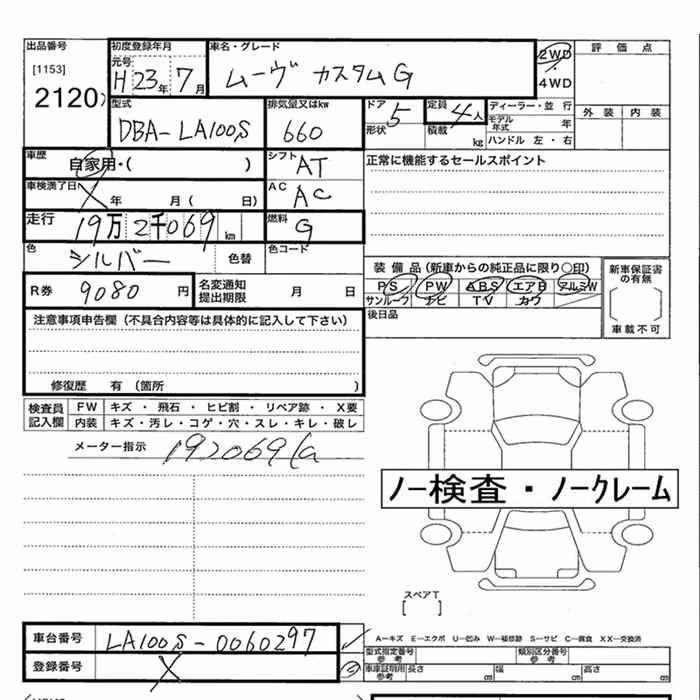 出品番号 初度登録年月 車名・グレード 評価点
[1153] 元号 2WD
2120 H 23年 7月 ムーヴ カスタムG 4WD
型式 排気量又はkw ドア 5 定員 4人 ディーラー・並 行 外装 内装
DBA-LA100S 660 形状 積載 kg モデル年式 年
ハンドル 左・右
車歴 自家用・( ) シフト AT 正常に機能するセールスポイント
車検満了日 X 年 月( 日) AC AC
走行 19万2千069 km 燃料 G
色 シルバー 色替 色コード
装備品(新車からの純正品に限り○印) 新車保証書の有無
R券 9080 円 名変通知提出期限 月 日 PS PW ABS エアB アルミW
サンルーフ ナビ TV カワ
注意事項申告欄(不具合内容等は具体的に記入して下さい) 後日品 車載不可
修復歴 有(箇所 )
検査員記入欄 FW キズ・飛石・ヒビ割・リペア跡・X要
内装 キズ・汚レ・コゲ・穴・スレ・キレ・破レ
メーター指示 192069
ノー検査・ノークレーム
スペアT
[ ]
車台番号 LA100S-0060297 A―キズ E―エクボ U―凹み W―補修跡 S―サビ C―腐食 XX―交換済
登録番号 X 型式指定番号 参考 類別区分番号 参考
車車証明用 参考 長さ cm 幅 cm 高さ cm